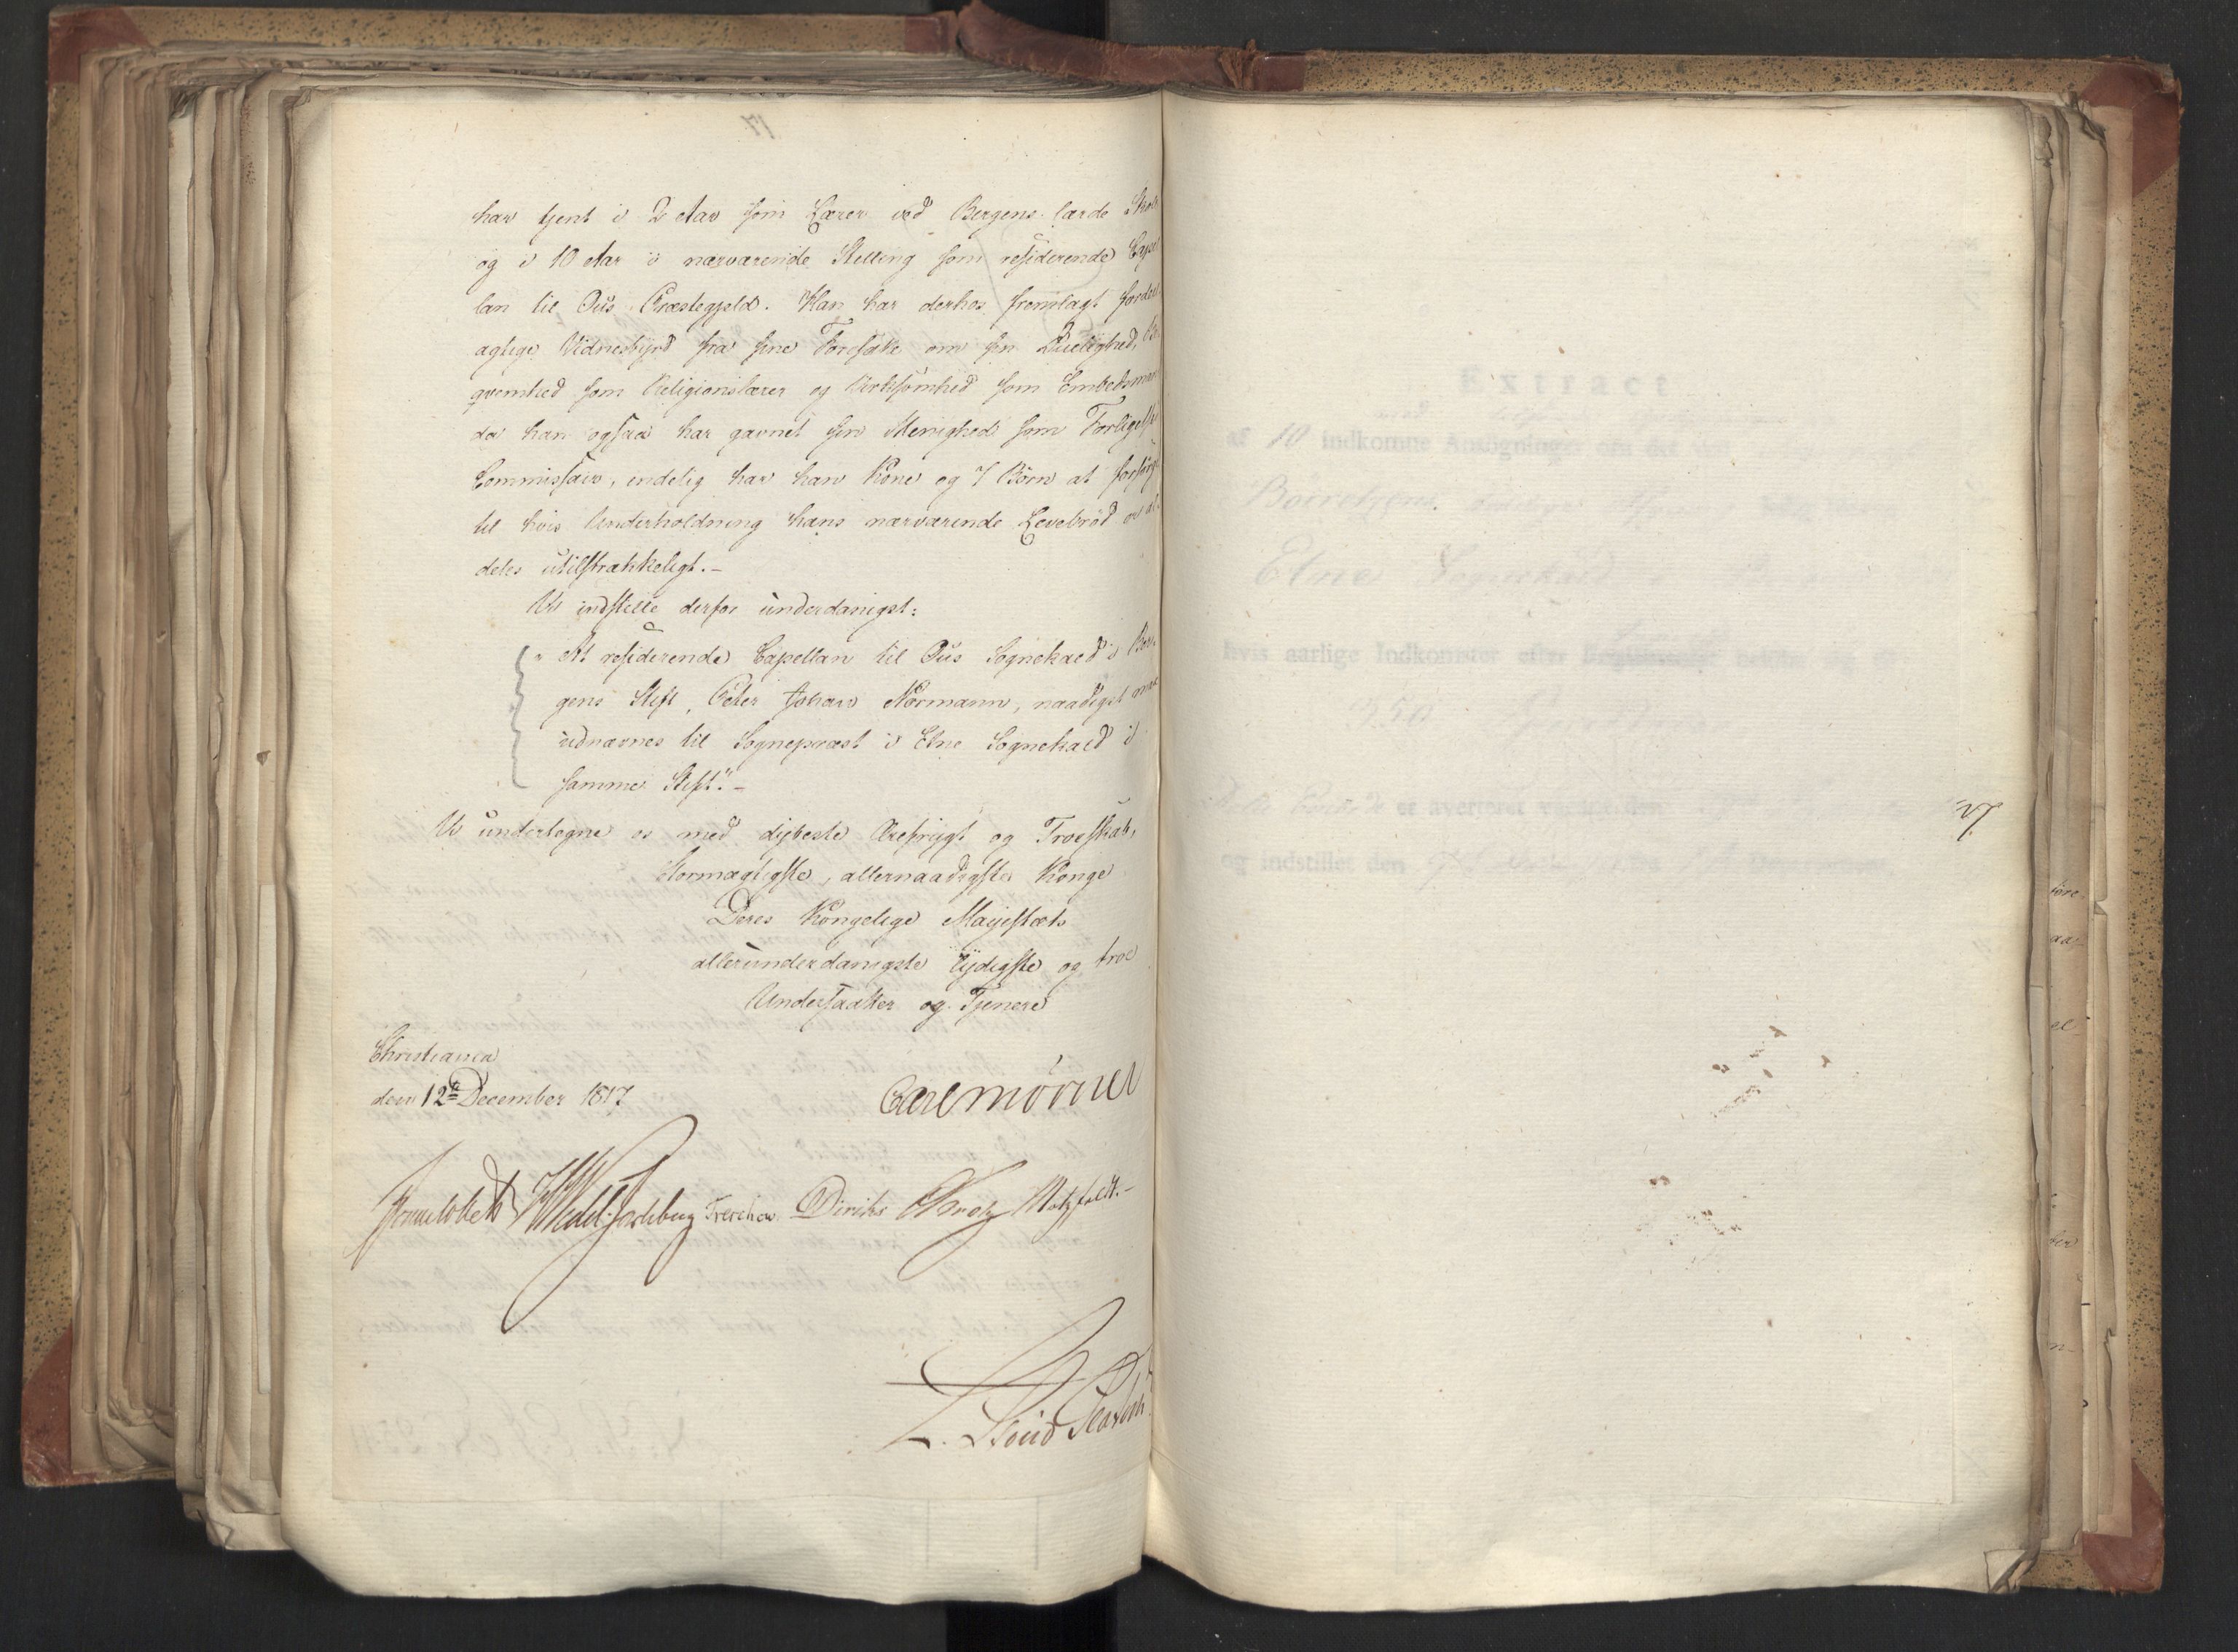 har tjent i 2 Aar som Lærer ved Bergens lærde Skole
og i 10 Aar i nærværende Stilling som residerende Capel
lan til Ous Præstegjeld. Han har derhos fremlagt fordel
agtige Vidnesbyrd fra sine Foresatte om sin Duelighed, Be-
qvemhed som Religionslærer og Virksomhed som Embedsmand
da han ogsaa har gavnet sin Menighed som Forligelses
Commissair, endelig har han Kone og 7 Børn at forsørge
til hvis Underholdning hans nærværende Levebrød er al-
deles utilstrækkeligt.-
Vi indstille derfor underdanigst:
"At residerende Capellan til Ous Sognekald i Ber-
gens Stift, Peter Johan Normann, naadigst maa
udnævnes til Sognepræst i Etne Sognekald i
samme Stift."-
Vi undertegne os med dybeste Ærefrygt og Troeskab,
Stormægtigste, allernaadigste Konge
Deres Kongelige Majestæts
allerunderdanigste lydigste og troe
Undersaatter og Tjenere
Christiania
den 12te December 1817
Carl Mörner
Sommerhielm HWedel-Jarlsberg Treschow Diriks CKrog Motzfeldt.-
L. Stoud Platou
Extract
af 10 indkomne Ansøgninger om det
Etne Sognekald
hvis aarlige Indkomster efter
250
er averteret vacant den
og indstillet den
27